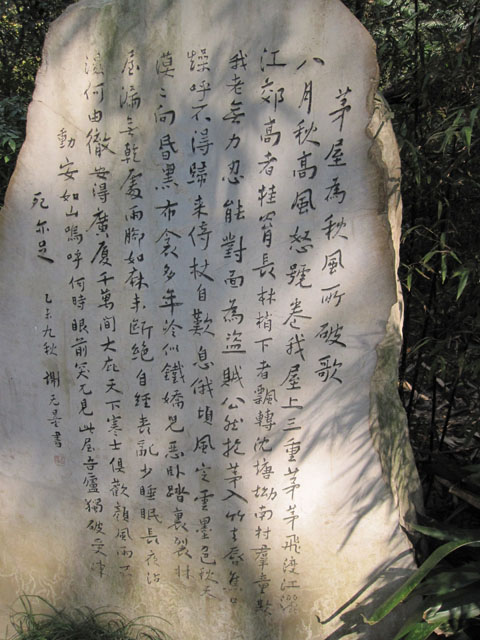 茅屋為秋風所破歌
八月秋高風怒號卷我屋上三重茅茅飛渡江灑
江郊高者挂罥長林梢下者飄轉沈塘坳南村羣童欺
我老無力忍能對面為盜賊公然抱茅入竹去唇焦口
燥呼不得歸來倚杖自歎息俄頃風定雲墨色秋天
漠〻向昏黑布衾多年冷似鐵嬌兒惡卧踏裏裂牀
屋漏無乾處雨腳如麻未斷絕自經喪亂少睡眠長夜沾
濕何由徹安得廣厦千萬間大庇天下寒士俱歡顏風雨不
動安如山嗚呼何時眼前突兀見此屋吾廬獨破受凍
死亦足
乙未九秋 謝无量書